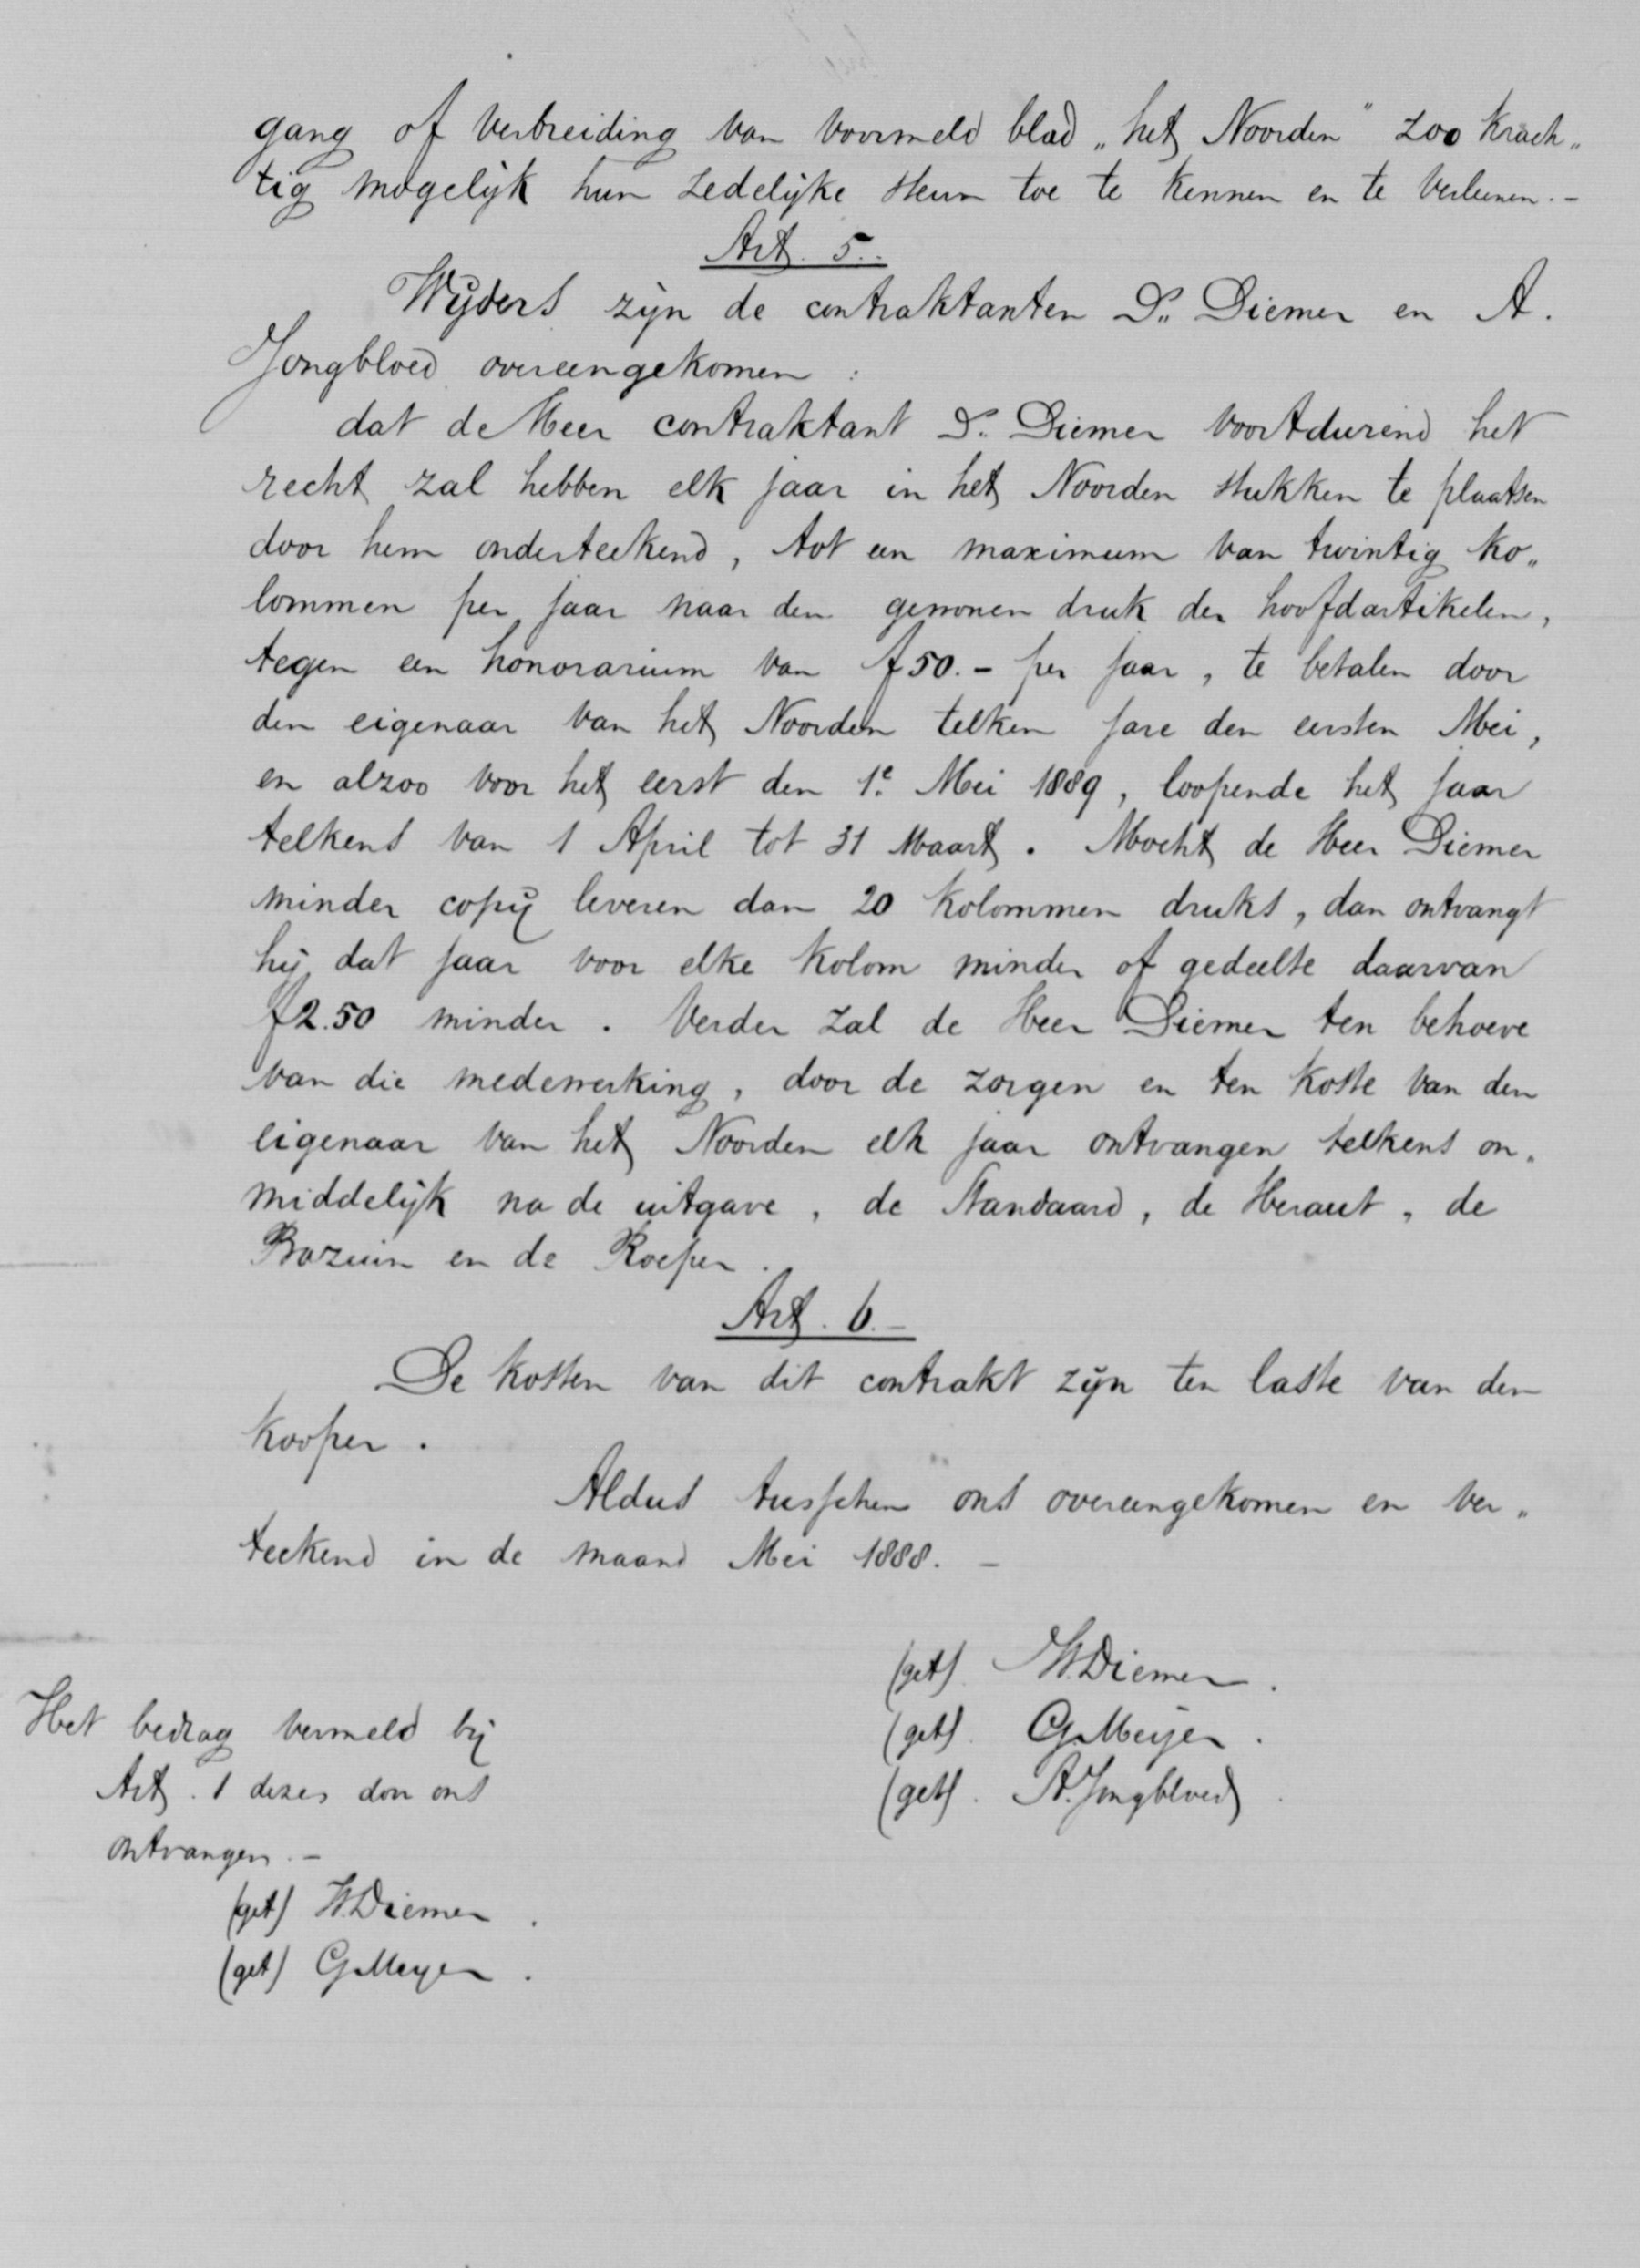 gang of verbreiding van voormeld blad „het Noorden" zoo krach„
tig mogelijk hun zedelijke steun toe te kennen en te verleenen.-
Art. 5..
Wijders zijn de contraktanten Ds. Diemer en A.
Jongbloed overeengekomen :
dat de Heer contraktant Ds. Diemer voortdurend het
recht zal hebben elk jaar in het Noorden stukken te plaatsen
door hem onderteekend, tot een maximum van twintig ko„
lommen per jaar naar den gewonen druk der hoofdartikelen,
tegen een honorarium van f 50.- per jaar, te betalen door
den eigenaar van het Noorden telken jare den eersten Mei,
en alzoo voor het eerst den 1e Mei 1889, loopende het jaar
telkens van 1 April tot 31 Maart. Mocht de Heer Diemer
minder copij leveren dan 20 kolommen druks, dan ontvangt
hij dat jaar voor elke kolom minder of gedeelte daarvan
f 2.50 minder. Verder zal de Heer Diemer ten behoeve
van die medewerking, door de zorgen en ten koste van den
eigenaar van het Noorden elk jaar ontvangen telkens on„
middelijk na de uitgave, de Standaard, de Heraut, de
Bazuin en de Roeper.
Art. 6.-
De kosten van dit contrakt zijn ten laste van den
kooper.
Aldus tusschen ons overeengekomen en ver„
teekend in de maand Mei 1888. -
(get) H.Diemer.
(get). G.Meijer.
(get). A.Jongbloed.
Het bedrag vermeld bij
Art. 1 dezes door ons
ontvangen.-
(get) H.Diemer.
(get) G.Meijer.